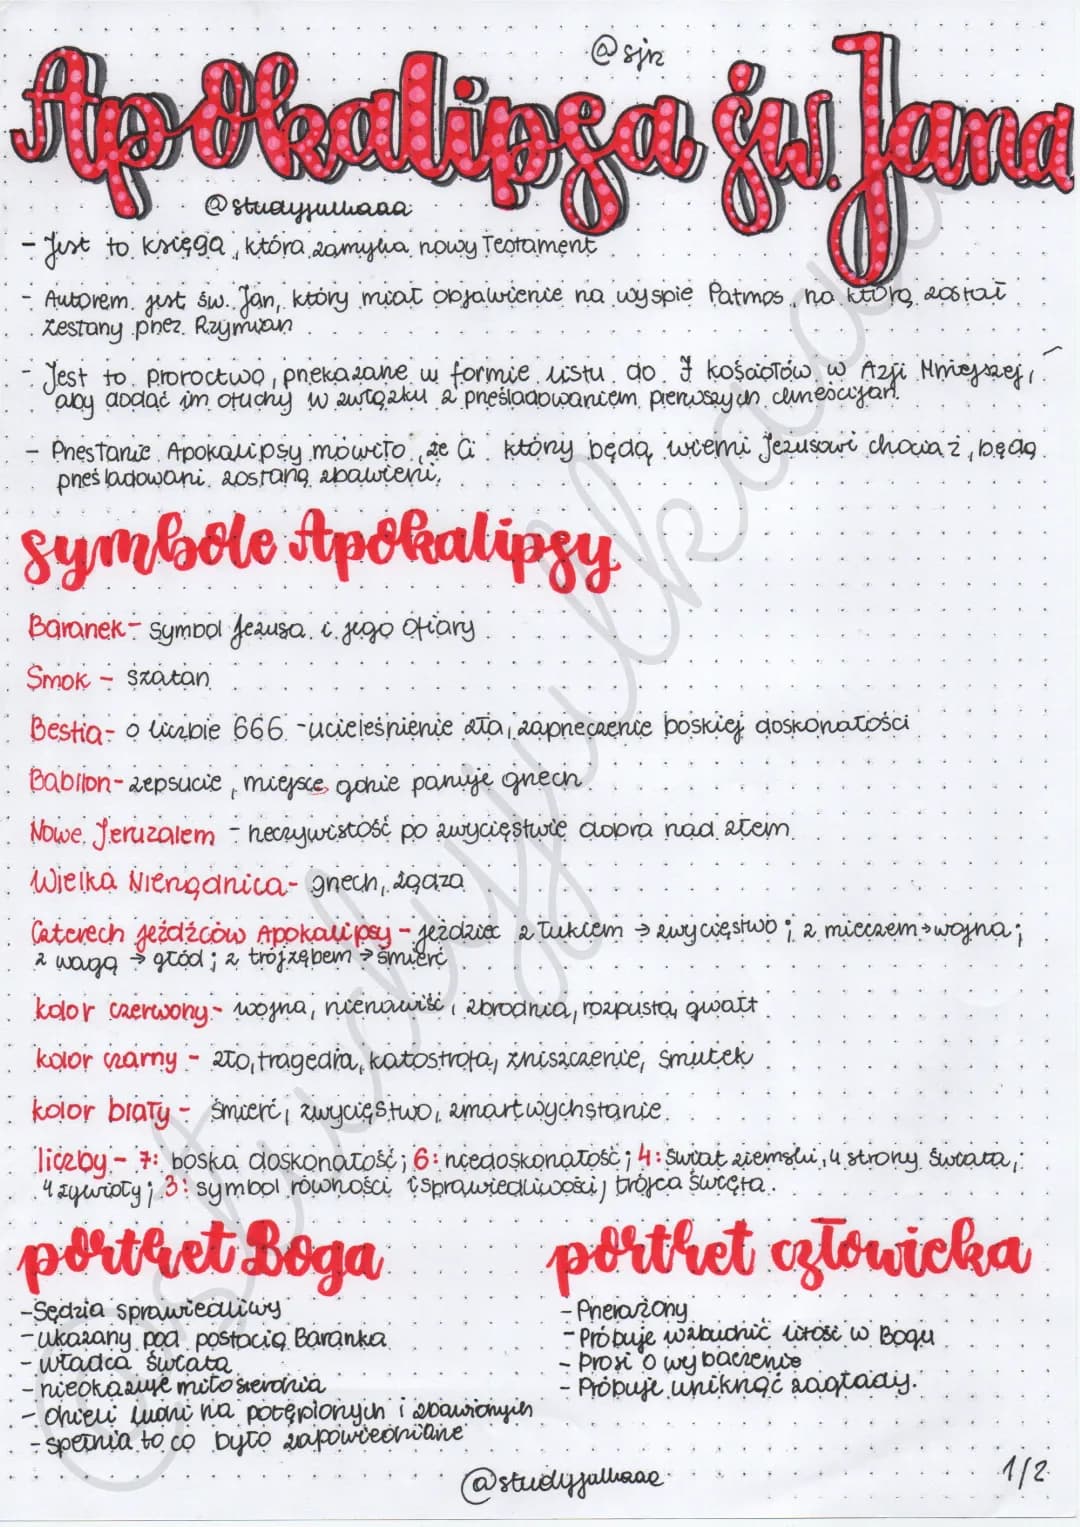 @sjn
Apokalipsa św. Jana
@studyjulkaaa
- Jest to księga, która zamyka nowy Testament
- Autorem jest św. Jan, który miał objawienie na wyspie Patmos, na którą został
zesłany przez Rzymian
- Jest to proroctwo, przekazane w formie listu do 7 kościołów w Azji Mniejszej,
aby dodać im otuchy w związku z prześladowaniem pierwszych chrześcijan.
- Przesłanie Apokalipsy mówiło, że Ci który będą wierni Jezusowi chociaż, będą
prześladowani zostaną zbawieni.
symbole Apokalipsy
Baranek - symbol Jezusa i jego Ofiary
Smok - szatan
Bestia - o liczbie 666 - ucieleśnienie zła, zaprzeczenie boskiej doskonałości
Babilon - zepsucie, miejsce gdzie panuje grzech
Nowe Jeruzalem - rzeczywistość po zwycięstwie dobra nad złem
Wielka Nierządnica - grzech, żądza
Czterech jeźdźców Apokalipsy - jeździec z łukiem → zwycięstwo; z mieczem → wojna;
z wagą → głód; z trójzębem → śmierć
kolor czerwony - wojna, nienawiść, zbrodnia, rozpusta, gwałt
kolor czarny - zło, tragedia, katastrofa, zniszczenie, smutek
kolor biały - śmierć, zwycięstwo, zmartwychstanie
liczby - 7: boska doskonałość; 6: niedoskonałość; 4: świat ziemski, 4 strony świata,
4 żywioły; 3: symbol równości i sprawiedliwości, trójca święta.
portret Boga
- Sędzia sprawiedliwy
- ukazany pod postacią Baranka
- władca świata
- nieokazuje miłosierdzia
- Dzieli ludzi na potępionych i zbawionych
- spełnia to co było zapowiedziane
portret człowieka
- Przerażony
- Próbuje wzbudzić litość w Bogu
- Prosi o wybaczenie
- Próbuje uniknąć zagłady.
@studyjulkaaa
1/2
@studyjulkaaa